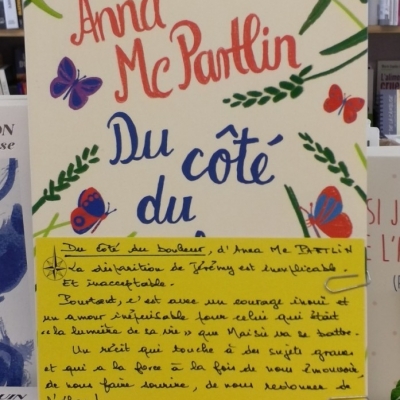 Anna
McPartlin
Du côté
du
Du côté du bonheur, d'Anna Mc PARTLIN
La disparition de Jérémy est inexplicable.
Et inacceptable.
Pourtant, c'est avec un courage inouï et
un amour indéfectible pour celui qui était
"la lumière de sa vie" que Maisie va se battre.
Un récit qui touche à des sujets graves
et qui a la force à la fois de nous émouvoir,
de nous faire sourire, de nous redonner de
ON
se
SI J
E L'A
UIN